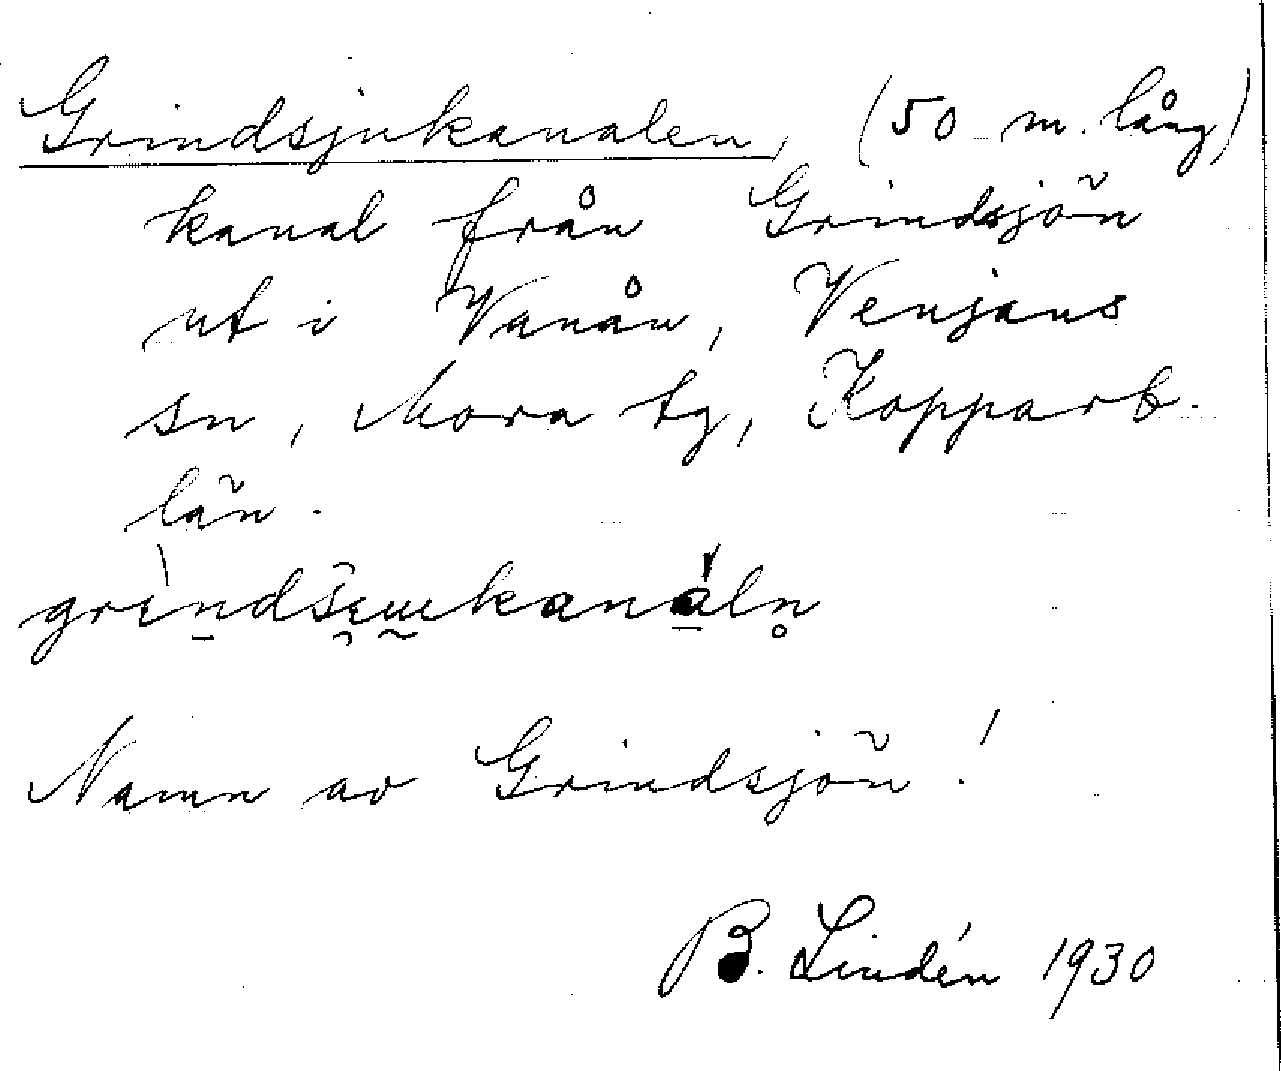 Grindsjukanalen, (50 m. lång)
kanal från Grindsjön
ut i Vanån, Venjans
sn, Mora tg, Kopparb.
län.
Namn av Grindsjön!
B. Lindén 1930